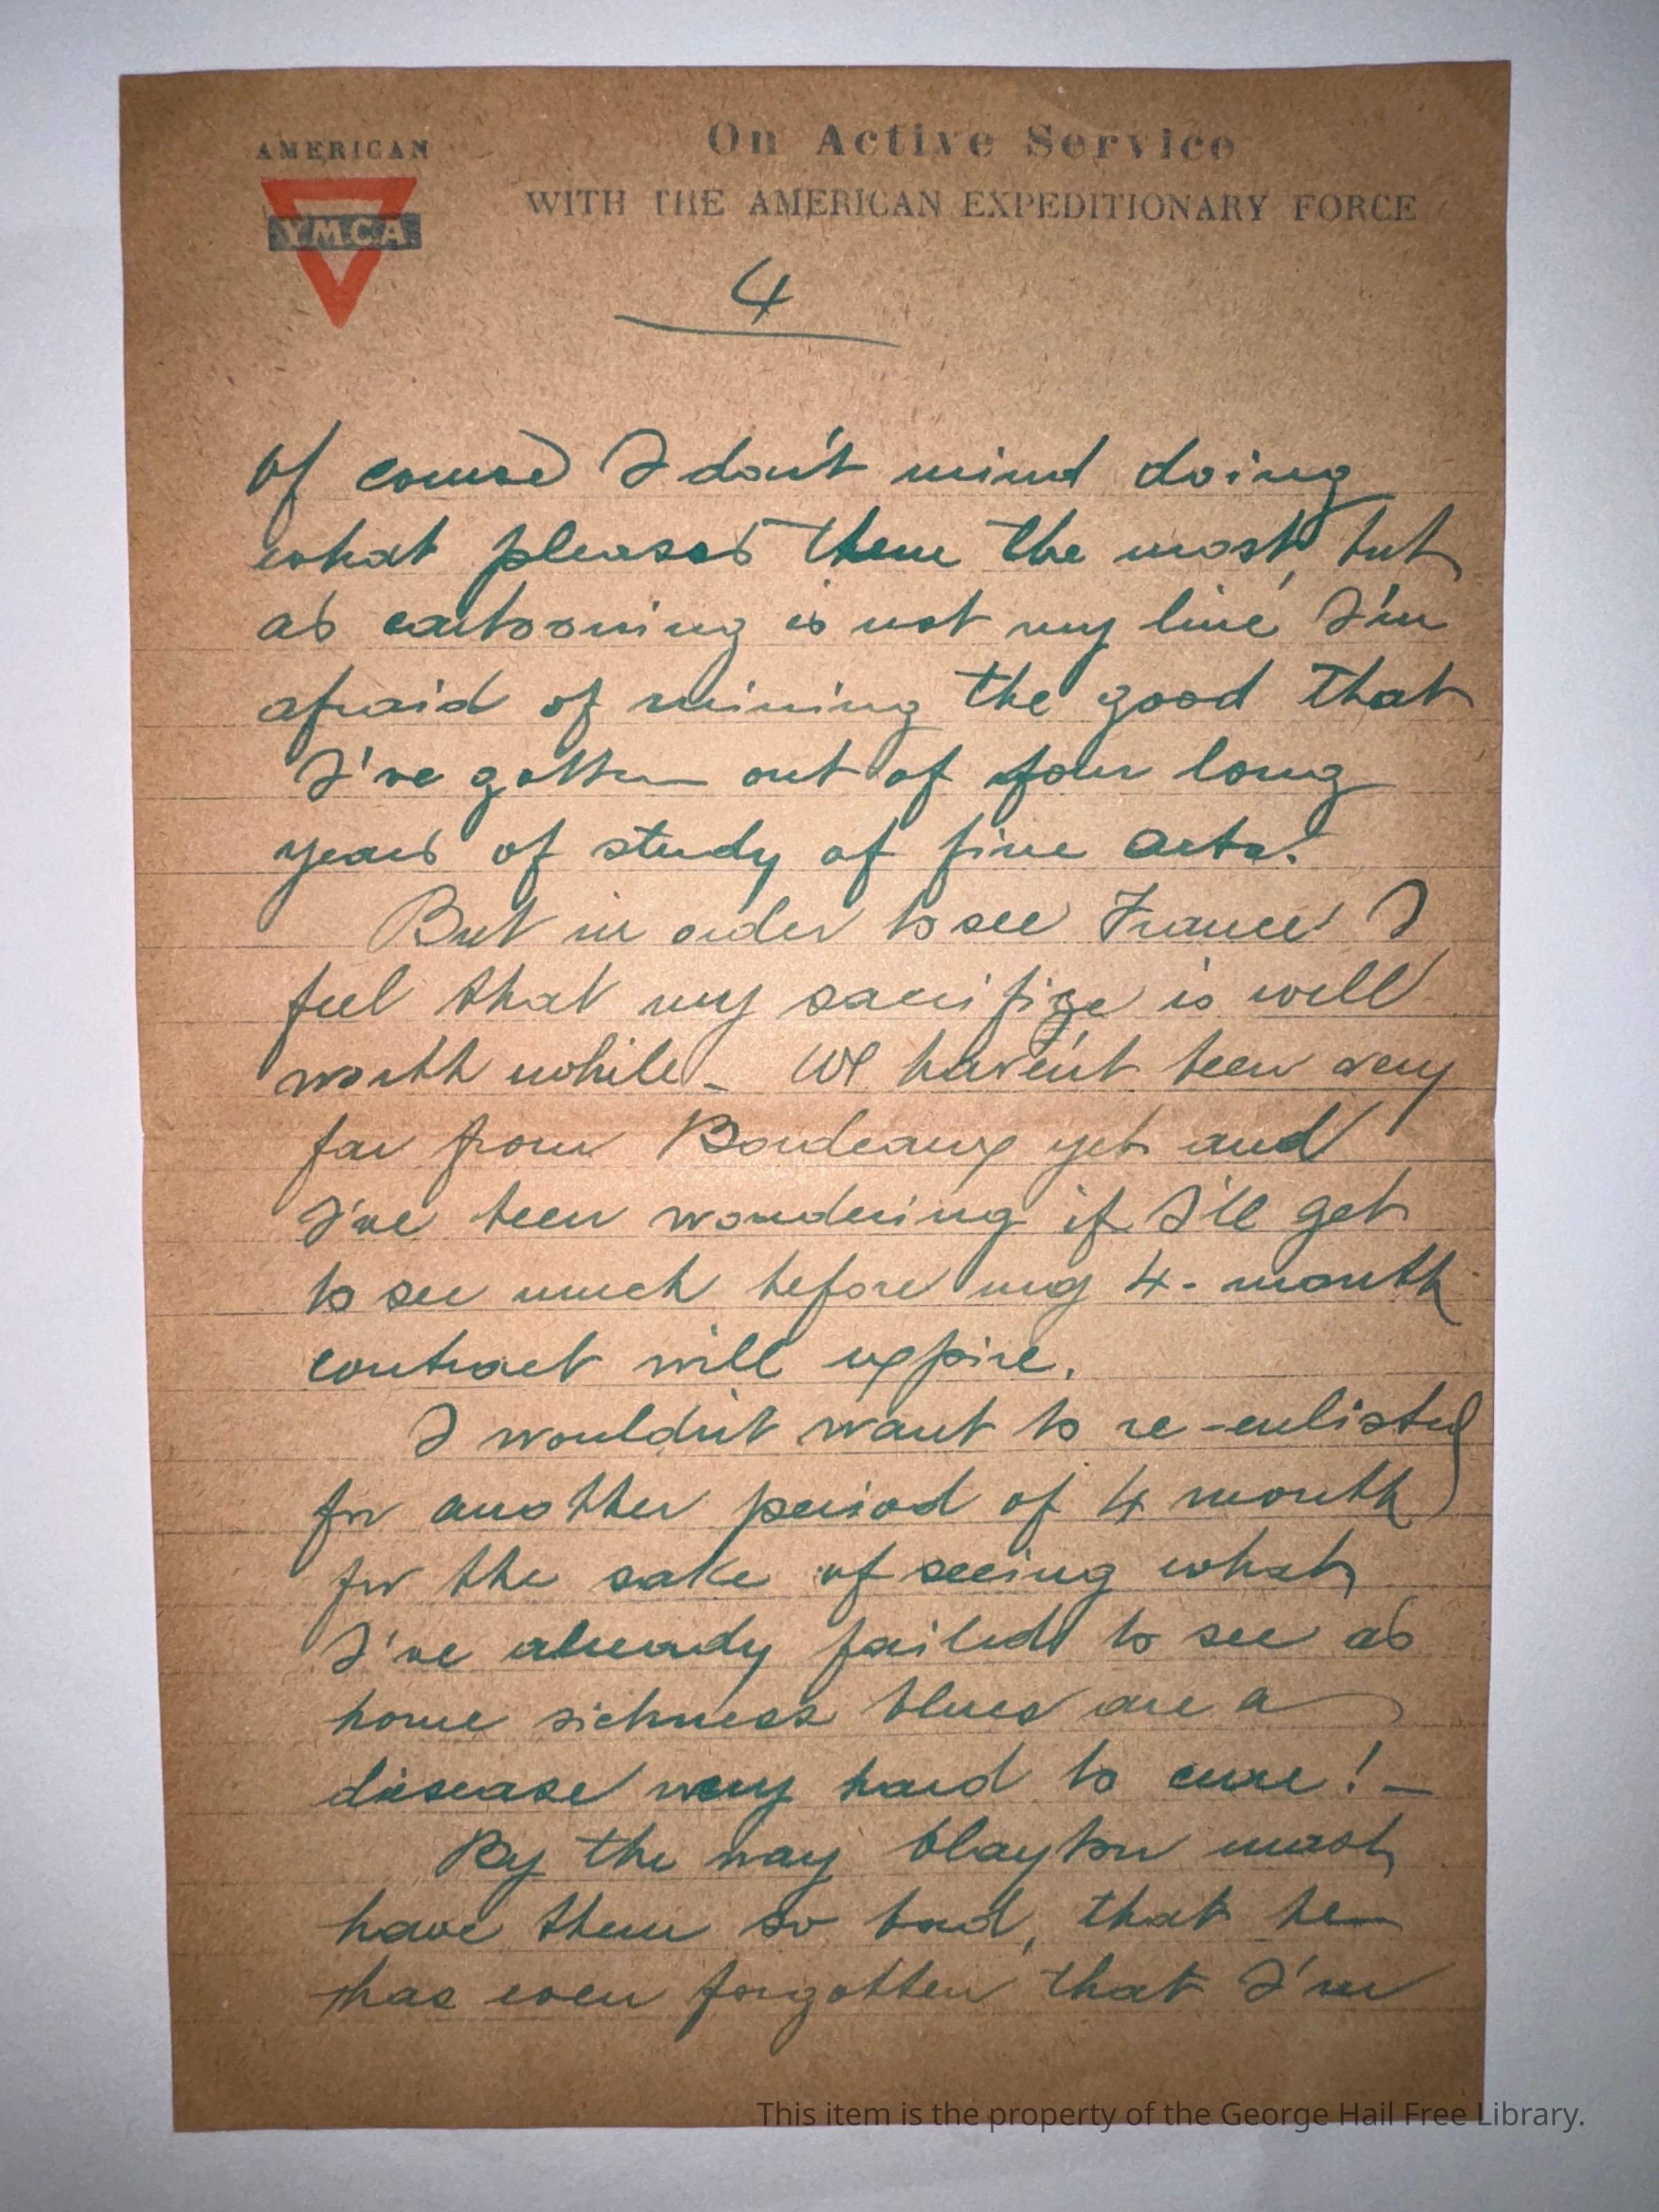 AMERICAN
YMCA
On Active Service
WITH THE AMERICAN EXPEDITIONARY FORCE
4
of course I don't mind doing
what pleases them the most, but
as cartooning is not my line I'm
afraid of ruining the good that
I've gotten out of four long
years of study of fine arts.
But in order to see France I
feel that my sacrifize is well
worth while - We haven't been very
far from Bordeaux yet and
I've been wondering if I'll get
to see much before my 4-month
contract will expire.
I wouldn't want to re-enlisted
for another period of 4 month
for the sake of seeing what
I've already failed to see as
home sickness blues are a
disease very hard to cure! -
By the way Clayton must
have them so bad, that he
has even forgotten that I'm
This item is the property of the George Hail Free Library.